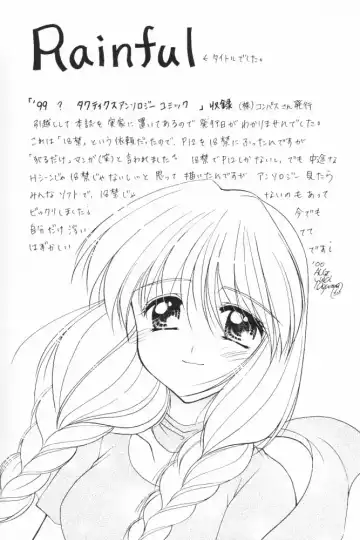 Rainful
←タイトルでした。
「'99 ? タクティクスアンソロジーコミック 」収録 (株)コンパスさん発行
引越しして本誌を実家に置いてあるので発行日がわかりませんでした。
これは「18禁」という依頼だったので、P12を18禁にふったんですが
「やるだけ」マンガ(笑)と言われました。 18禁でP12しかないし、でも中途な
Hシーンじゃ18禁じゃないしいと思って描いたんですが アンソロジー見たら
みんなソフトで、18禁じゃ ないのもあって
ビックリしました。 今でも
自分だけ浮い てて
はずかしい です。
'00